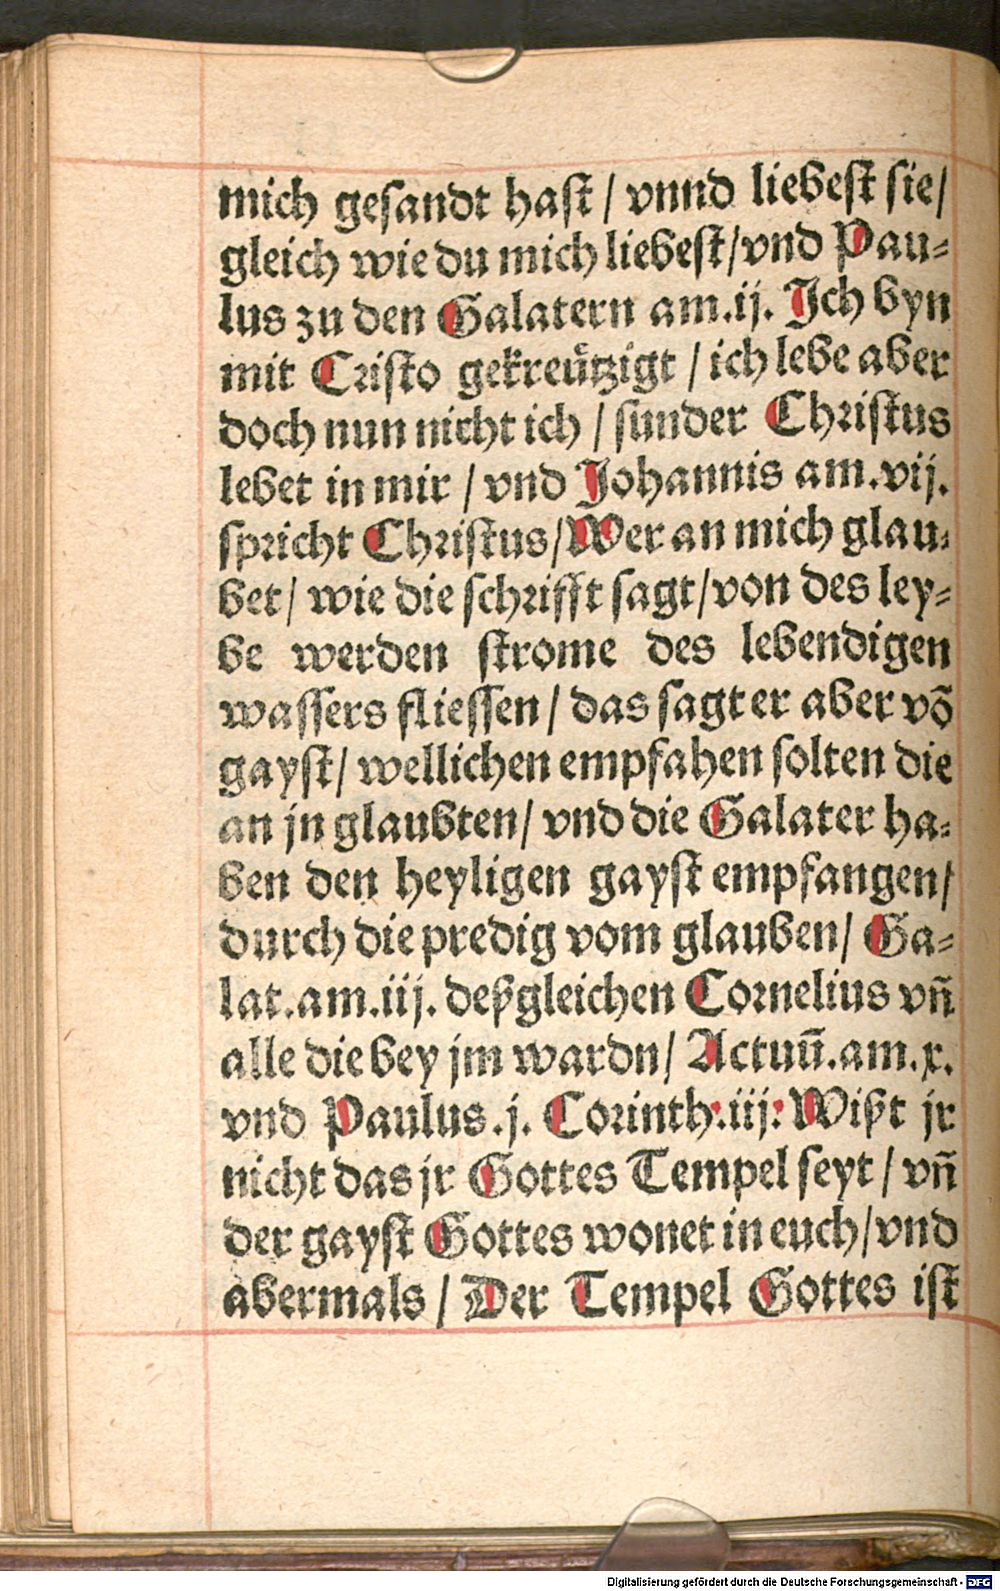 mich gesandt hast / vnnd liebest sie/
gleich wie du mich liebest/vnd Pau-
lus zu den Galatern am.ij. Ich byn
mit Cristo gekreützigt / ich lebe aber
doch nun nicht ich / sunder Christus
lebet in mir / vnd Johannis am.vij.
spricht Christus/Wer an mich glau-
bet/ wie die schrifft sagt/von des ley-
be werden strome des lebendigen
wassers fliessen/ das sagt er aber võ
gayst/ wellichen empfahen solten die
an jn glaubten/ vnd die Galater ha-
ben den heyligen gayst empfangen/
durch die predig vom glauben/ Ga-
lat.am.iij. deßgleichen Cornelius vñ
alle die bey jm wardn/ Actuũ.am.x.
vnd Paulus.j. Corinth:.iij: Wißt jr
nicht das jr Gottes Tempel seyt / vñ
der gayst Gottes wonet in euch/vnd
abermals / Der Tempel Gottes ist
Digitalisierung gefördert durch die Deutsche Forschungsgemeinschaft - DFG